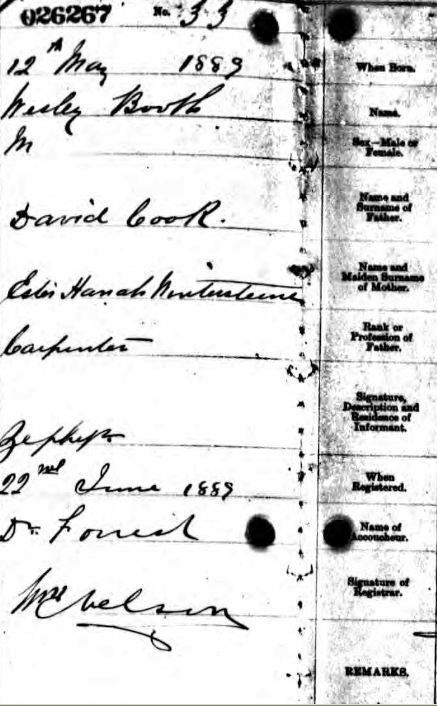 026267 No. 33
12th May 1889 When Born.
Wesley Booth Name.
M Sex—Male or Female.
David Cook. Name and Surname of Father.
Ester Hanah Name and Maiden Surname of Mother.
Carpenter Rank or Profession of Father.
Zephyr Signature, Description and Residence of Informant.
22nd June 1889 When Registered.
Dr. Forrest Name of Accoucheur.
Signature of Registrar.
REMARKS.